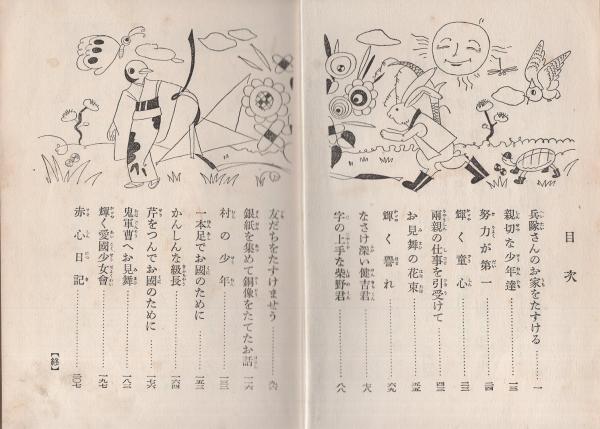 目次
兵隊さんのお家をたすける……一
親切な少年達……一三
努力が第一……二四
輝く童心……三三
兩親の仕事を引受けて……四三
お見舞の花束……五五
輝く譽れ……六九
なさけ深い健吉君……七八
字の上手な柴野君……八八
友だちをたすけませう……九六
銀紙を集めて銅像をたてたお話……一一六
村の少年……一三二
一本足でお國のために……一五三
かんしんな級長……一六四
芹をつんでお國のために……一七六
鬼軍曹へお見舞……一八二
輝く愛國少女會……一九七
赤心日記……二〇七
【終】